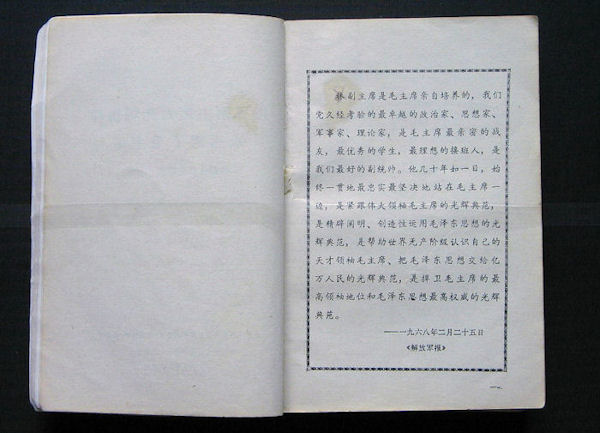 林副主席是毛主席亲自培养的，我们
党久经考验的最卓越的政治家、思想家、
军事家、理论家，是毛主席最亲密的战
友，最优秀的学生，最理想的接班人，是
我们最好的副统帅。他几十年如一日，始
终一贯地最忠实最坚决地站在毛主席一
边，是紧跟伟大领袖毛主席的光辉典范，
是精辟阐明、创造性运用毛泽东思想的光
辉典范，是帮助世界无产阶级认识自己的
天才领袖毛主席、把毛泽东思想交给亿
万人民的光辉典范，是捍卫毛主席的最
高领袖地位和毛泽东思想最高权威的光辉
典范。
——一九六八年二月二十五日
《解放军报》